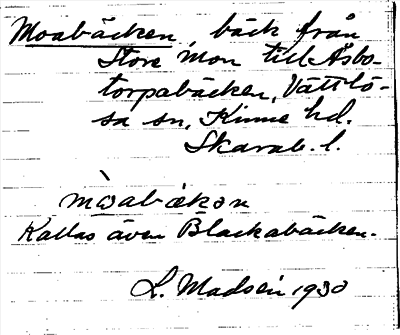 Moabäcken, bäck från
Store Mon till Åsbo-
torpabäcken, Vättlö-
sa sn, Kinne hd.
Skarab. l.
mòabäkən
Kallas även Blackabäcken.
L. Madsén 1930